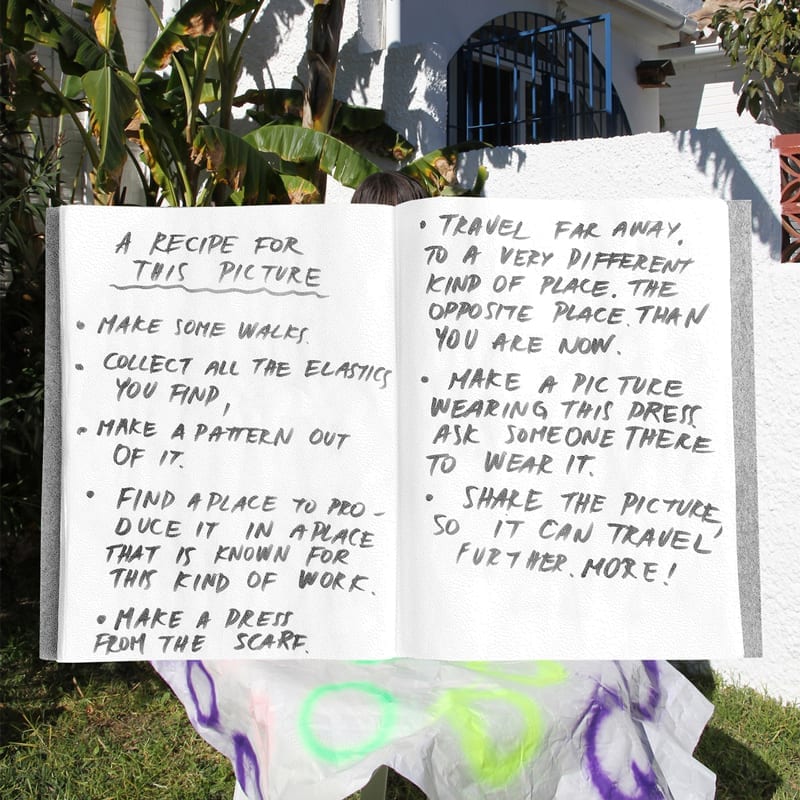 A RECIPE FOR
THIS PICTURE
• MAKE SOME WALKS.
• COLLECT ALL THE ELASTICS
YOU FIND,
• MAKE A PATTERN OUT
OF IT.
• FIND A PLACE TO PRO-
DUCE IT IN A PLACE
THAT IS KNOWN FOR
THIS KIND OF WORK.
• MAKE A DRESS
FROM THE SCARF.
• TRAVEL FAR AWAY,
TO A VERY DIFFERENT
KIND OF PLACE. THE
OPPOSITE PLACE THAN
YOU ARE NOW.
• MAKE A PICTURE
WEARING THIS DRESS.
ASK SOMEONE THERE
TO WEAR IT.
• SHARE THE PICTURE,
SO IT CAN TRAVEL
FURTHER. MORE!